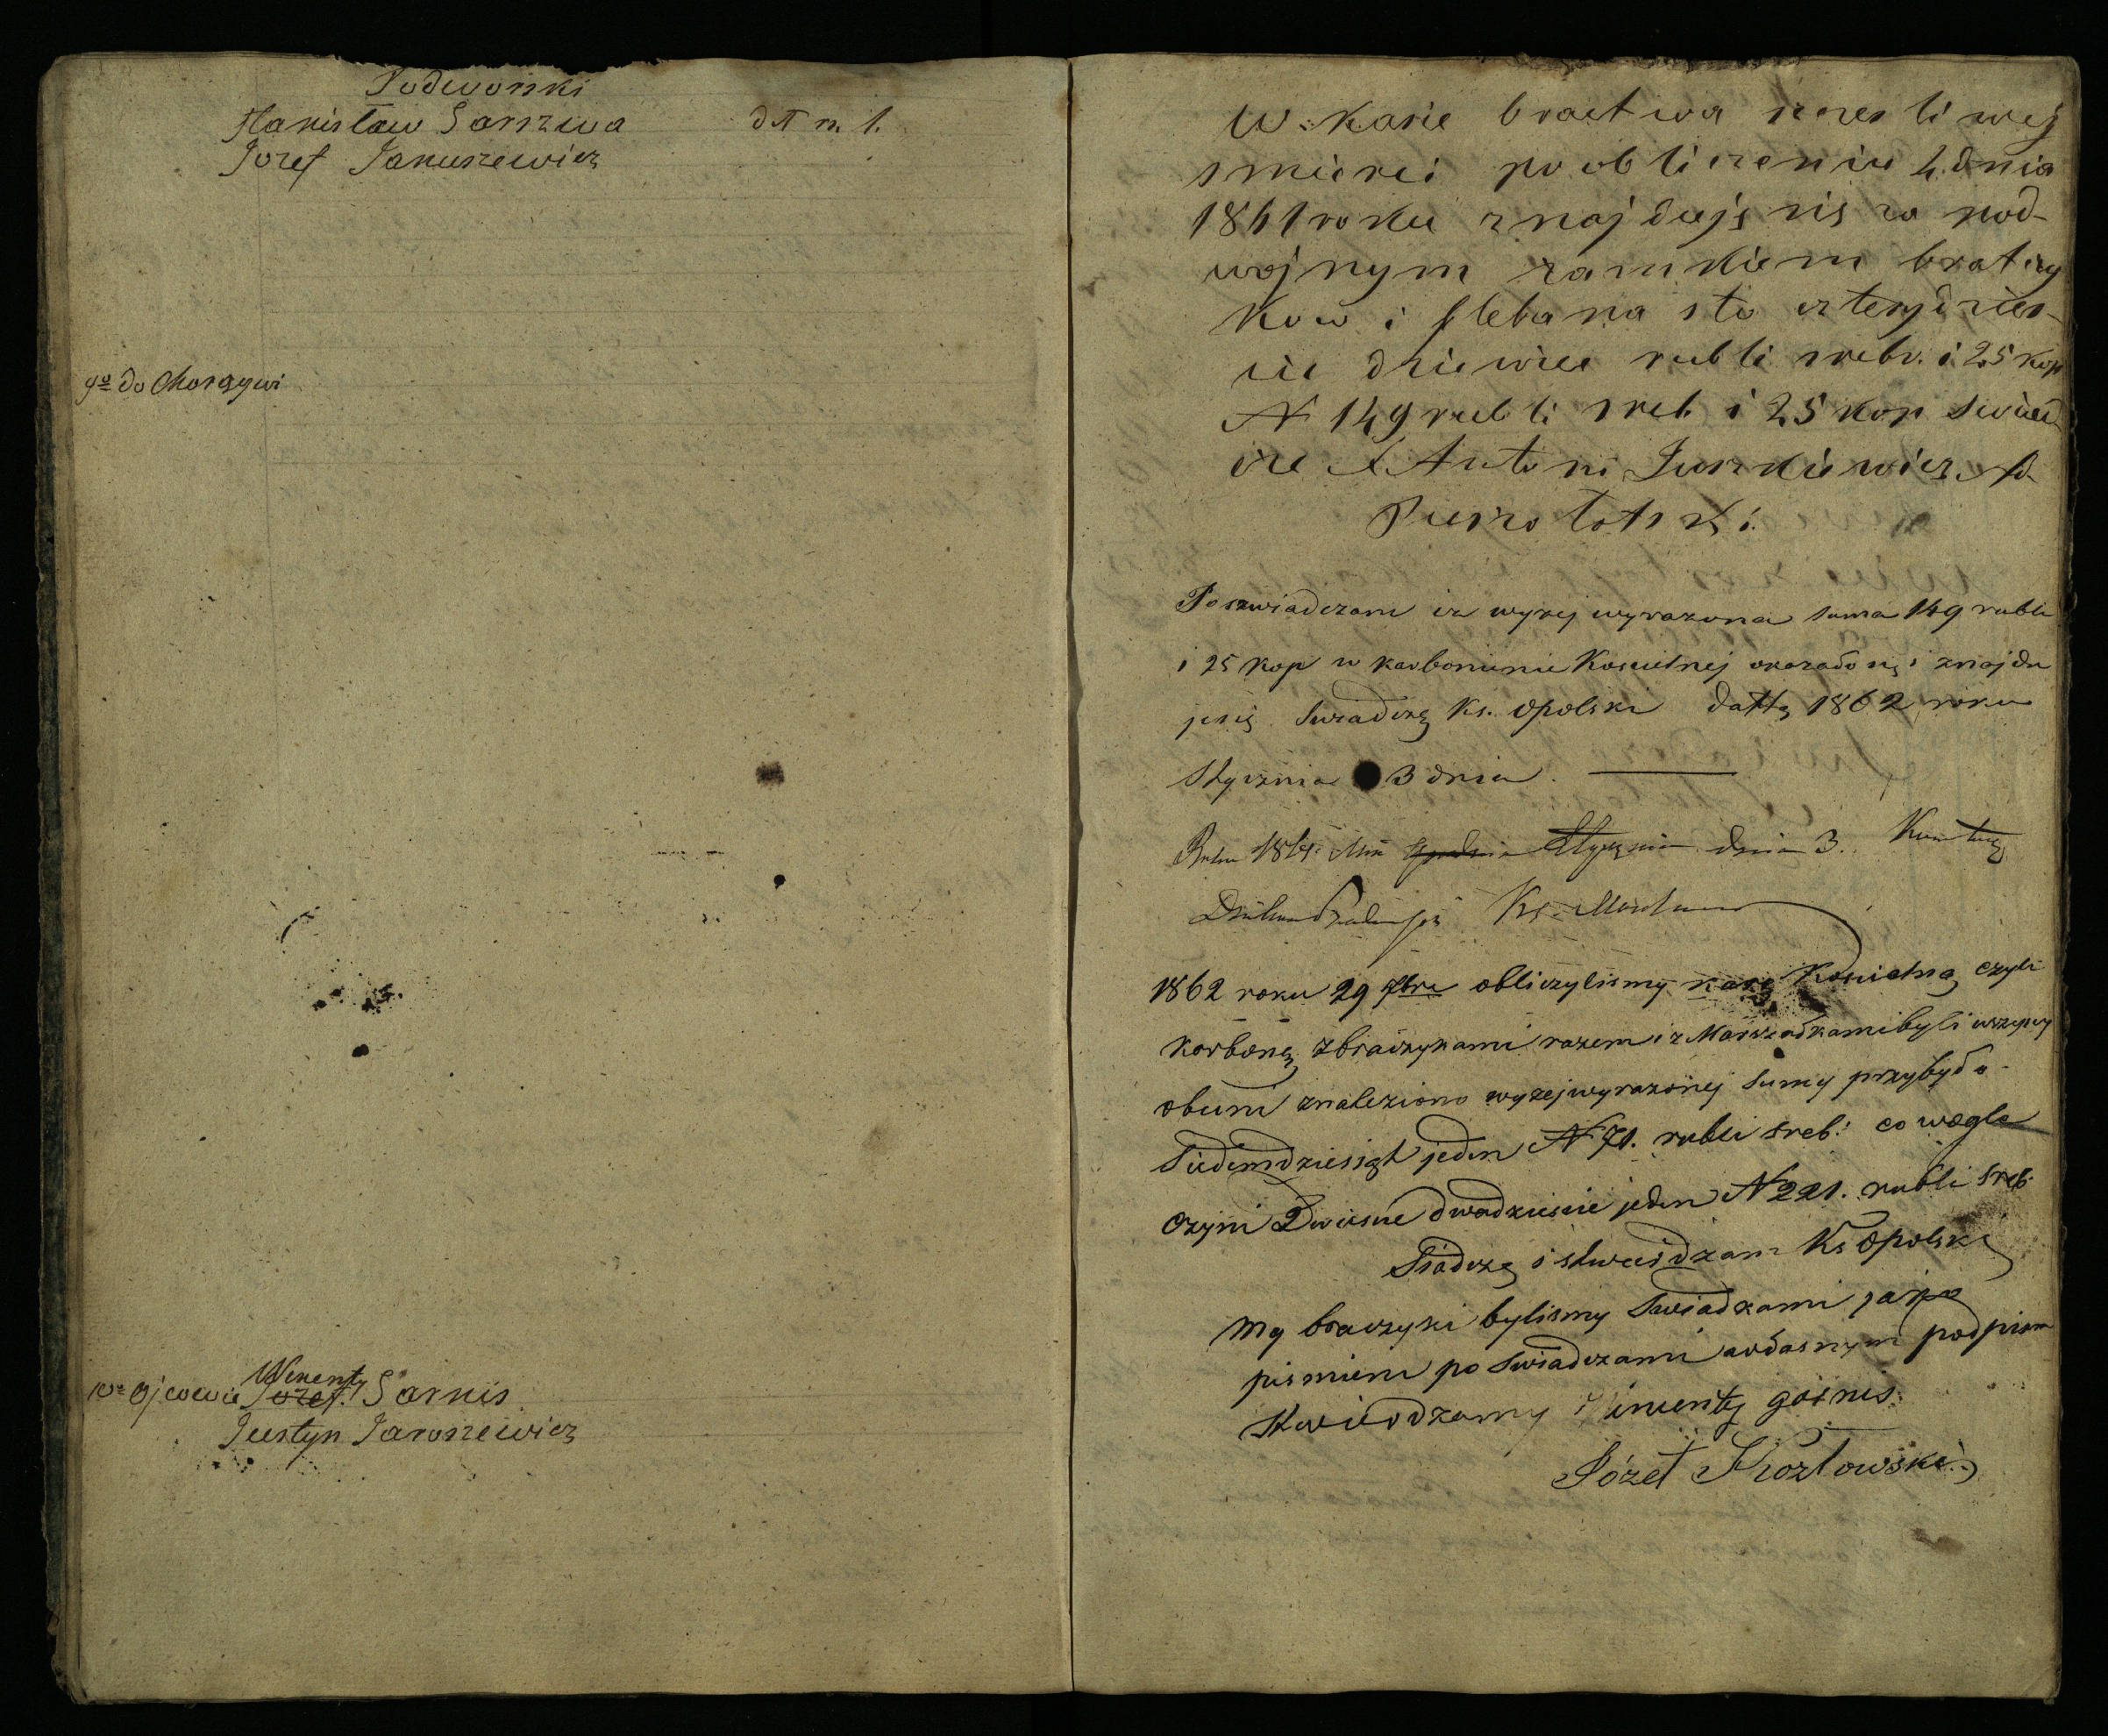 Podworski
Stanisław Sarszwa dtt n. 1.
Jozef Januszewicz
9o do Chorągwi
10o Ojcowie Wincenty Jozef Sarnis
Justyn Jaroszewicz
W kasie bractwa szczesliwej
smierci po obliczeniu 4 dnia
1861 roku znajduję się za pod-
wojnym zamkiem bratczy
kow i plebana sto czterydzies-
cie dziewiec rubli srebr. i 25 kop
N 149 rubli sreb i 25 kop Swiad
cze X Antoni Juszkiewicz
Poszwiadczam iz wyzej wyrazona suma 149 rubli
i 25 kop w karbonunie Koscielnej okazało się i znajdu
je się Swiadczę Ks. Opolski dattą 1862 roku
Stycznia 3 dnia.
Roku Stycznia dnia 3.
Ks.
1862 roku 29 7bra obliczylismy kasę Koscielną czyli
korbonę z braczykami razem i z Marszałkami byli wszyscy
obecni znaleziono wyzej wyrazonej sumy przybyło
Siedemdziesiąt jeden N 71. rubli sreb: co wogle
czyni Dwiescie dwadziescie jeden N 221. rubli sreb.
Siadczę i stwierdzam Ks Opolski
my braczyki bylismy Swiadkami
pismiem po swiadczami własnym podpisem
stwierdzamy Wincenty gainis.
Józef Kozłowski.